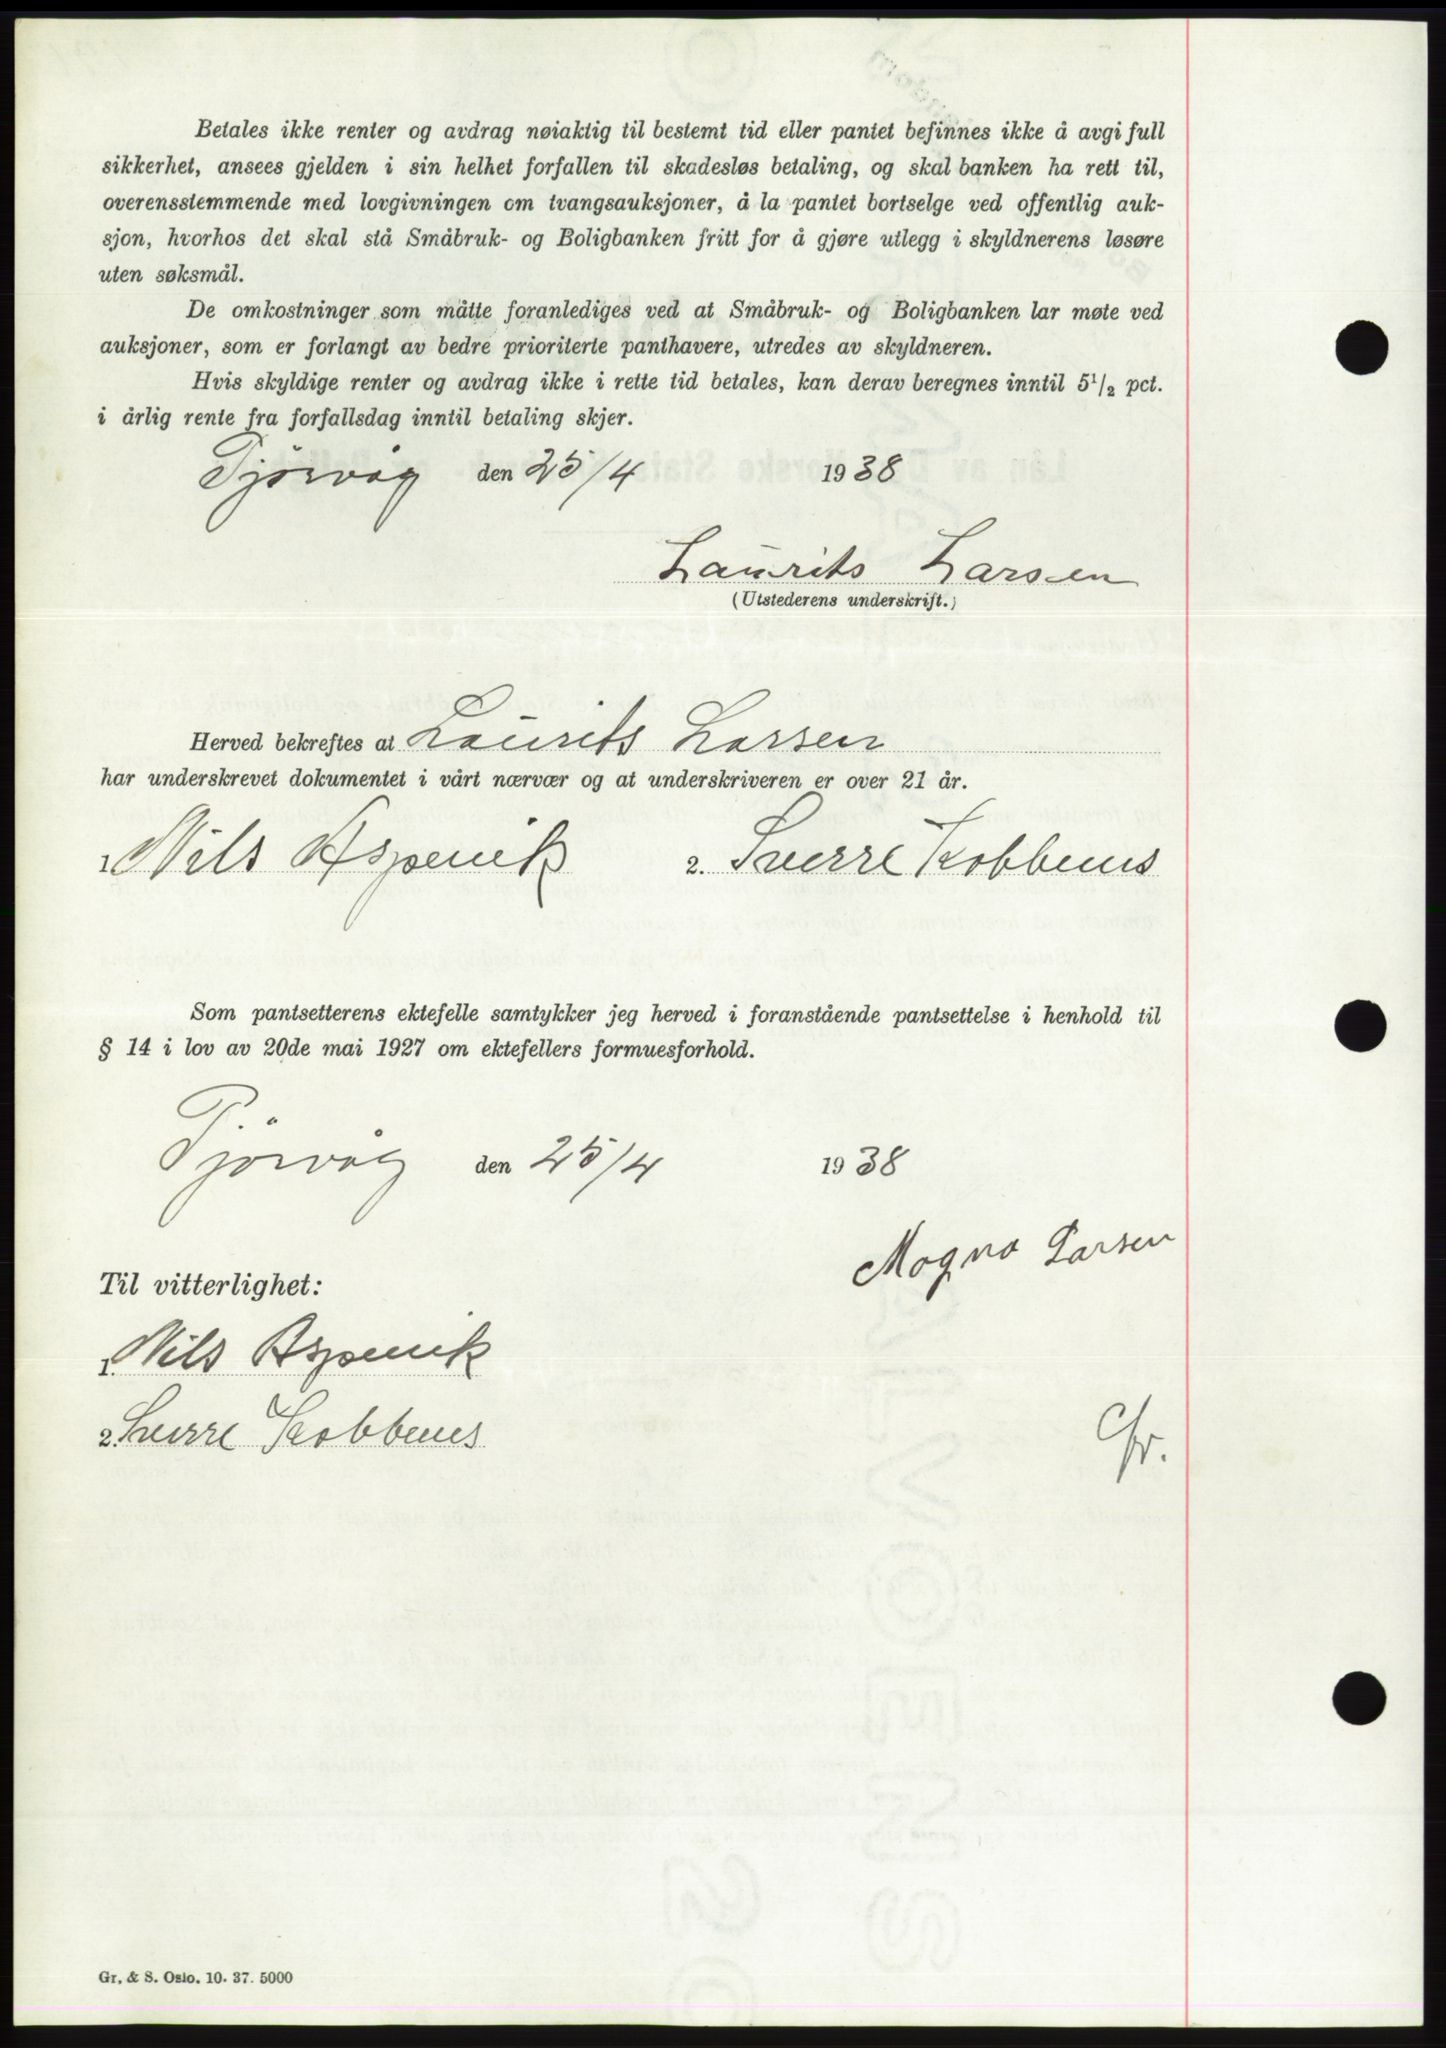 Betales ikke renter og avdrag nøiaktig til bestemt tid eller pantet befinnes ikke å avgi full
sikkerhet, ansees gjelden i sin helhet forfallen til skadesløs betaling, og skal banken ha rett til,
overensstemmende med lovgivningen om tvangsauksjoner, å la pantet bortselge ved offentlig auk-
sjon, hvorhos det skal stå Småbruk- og Boligbanken fritt for å gjøre utlegg i skyldnerens løsøre
uten søksmål.
De omkostninger som måtte foranlediges ved at Småbruk- og Boligbanken lar møte ved
auksjoner, som er forlangt av bedre prioriterte panthavere, utredes av skyldneren.
Hvis skyldige renter og avdrag ikke i rette tid betales, kan derav beregnes inntil 5 1/2 pct.
i årlig rente fra forfallsdag inntil betaling skjer.
Tjörvåg den 25/4 1938
Laurits Larsen
(Utstederens underskrift.)
Herved bekreftes at Laurits Larsen
har underskrevet dokumentet i vårt nærvær og at underskriveren er over 21 år.
1. Nils Aspevik 2. Sverre Kobbenes
Som pantsetterens ektefelle samtykker jeg herved i foranstående pantsettelse i henhold til
§ 14 i lov av 20de mai 1927 om ektefellers formuesforhold.
Tjörvåg den 25/4 1938
Magna Larsen
Til vitterlighet:
1. Nils Aspevik
2. Sverre Kobbenes
Gr. & S. Oslo. 10. 37. 5000